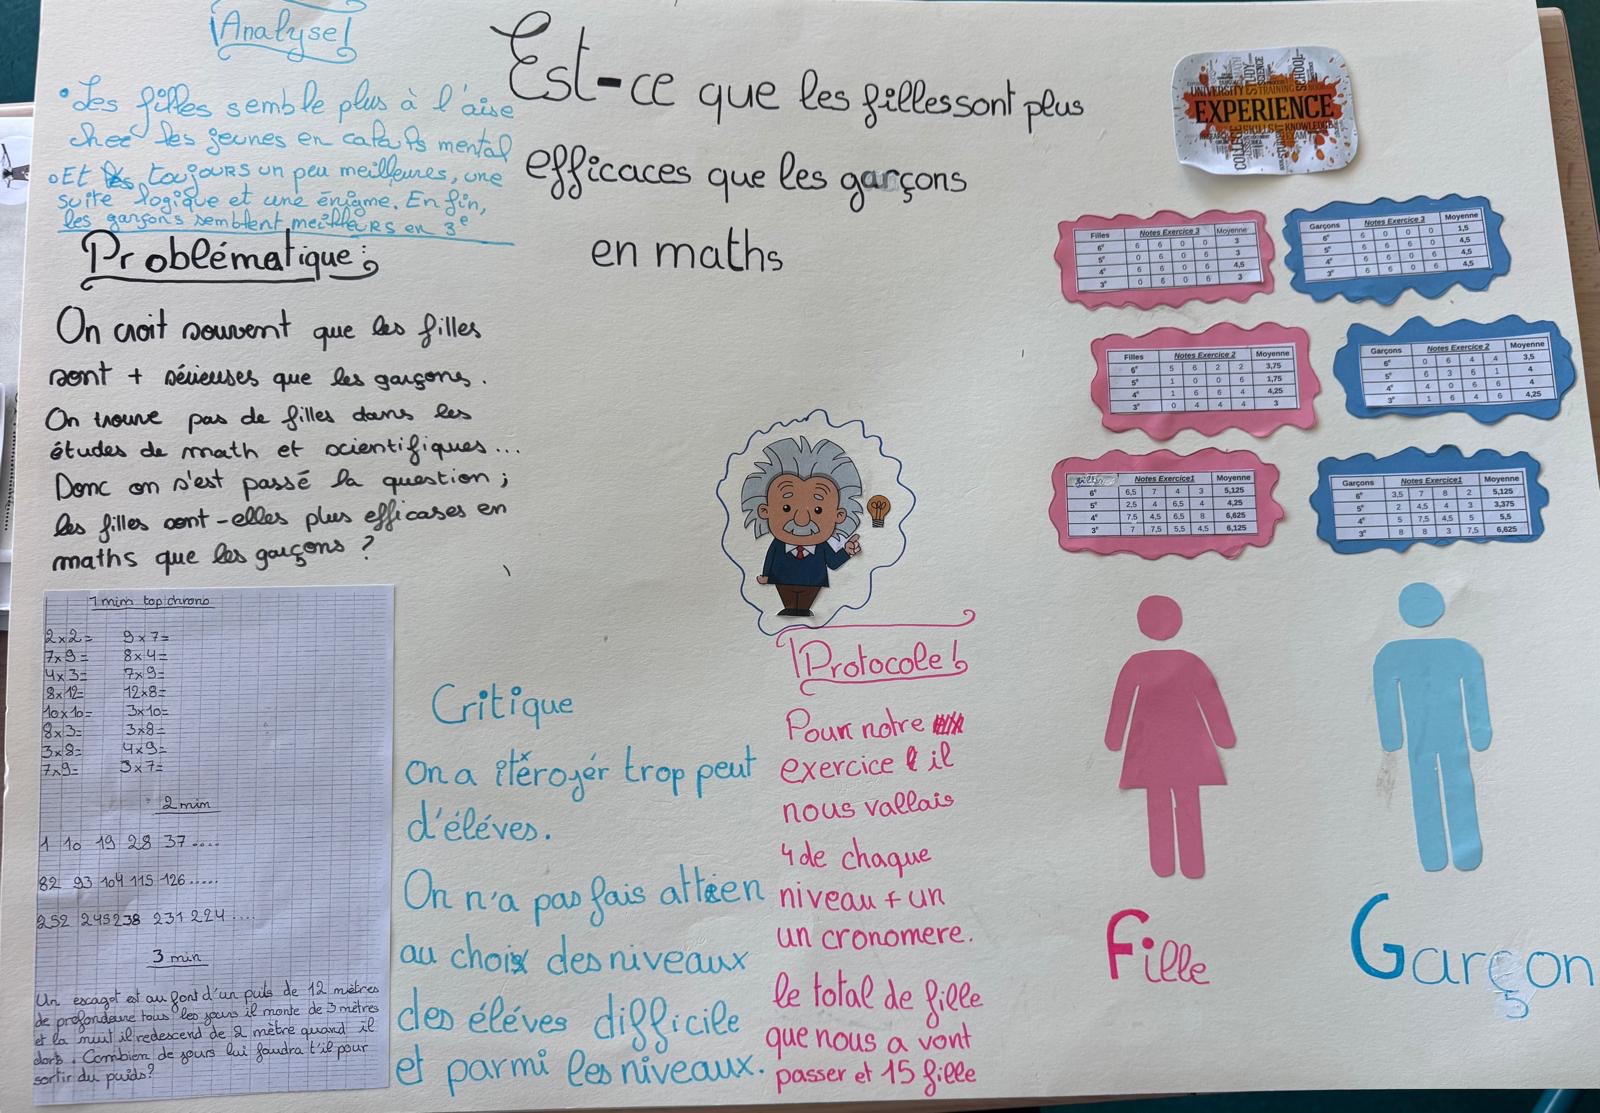 Analyse
• Les filles semble plus à l'aise
chee les jeunes en mental
• Et toujours un peu meilleures, une
suite logique et une énigme. En fin,
les garçons semblent meilleurs en 3e
Est-ce que les filles sont plus
efficaces que les garçons
en maths
Problématique :
On croit souvent que les filles
sont + sérieuses que les garçons.
On trouve pas de filles dans les
études de math et scientifiques...
Donc on s'est passé la question ;
les filles sont-elles plus efficases en
maths que les garçons ?
1 min top chrono
2x2= 9x7=
7x9= 8x4=
4x3= 7x9=
8x12= 12x8=
10x10= 3x10=
8x3= 3x8=
3x8= 4x9=
7x9= 3x7=
2 min
1 10 19 28 37 ....
82 93 104 115 126 .....
252 245 238 231 224 ....
3 min
Un escagot est au font d'un puis de 12 mètres
de profondeure tous les jours il monte de 3 mètres
et la nuit il redescend de 2 mètre quand il
dort. Combien de jours lui faudra t'il pour
sortir du puids?
Critique
on a itéroyér trop peut
d'éléves.
On n'a pas fais attien
au choix des niveaux
des éléves difficile
et parmi les niveaux.
Protocole
Pour notre
exercice il
nous vallais
4 de chaque
niveau + un
un cronomere.
le total de fille
que nous a vont
passer et 15 fille
UNIVERSITY STUDY SCIENCE SCHOOL
TRAINING
EXPERIENCE
SKILLS KNOWLEDGE
COLLEGE
Filles Notes Exercice 3 Moyenne
6e 6 6 0 0 3
5e 0 6 0 6 3
4e 6 6 0 6 4,5
3e 0 6 0 6 3
Garçons Notes Exercice 3 Moyenne
6e 6 0 0 0 1,5
5e 6 6 6 0 4,5
4e 6 6 6 0 4,5
3e 6 6 0 6 4,5
Filles Notes Exercice 2 Moyenne
6e 5 6 2 2 3,75
5e 1 0 0 6 1,75
4e 1 6 6 4 4,25
3e 0 4 4 4 3
Garçons Notes Exercice 2 Moyenne
6e 0 6 4 4 3,5
5e 6 3 6 1 4
4e 4 0 6 6 4
3e 1 6 4 6 4,25
Notes Exercice1 Moyenne
6e 6,5 7 4 3 5,125
5e 2,5 4 6,5 4 4,25
4e 7,5 4,5 6,5 8 6,625
3e 7 7,5 5,5 4,5 6,125
Garçons Notes Exercice1 Moyenne
6e 3,5 7 8 2 5,125
5e 2 4,5 4 3 3,375
4e 5 7,5 4,5 5 5,5
3e 8 8 3 7,5 6,625
Fille
Garçon